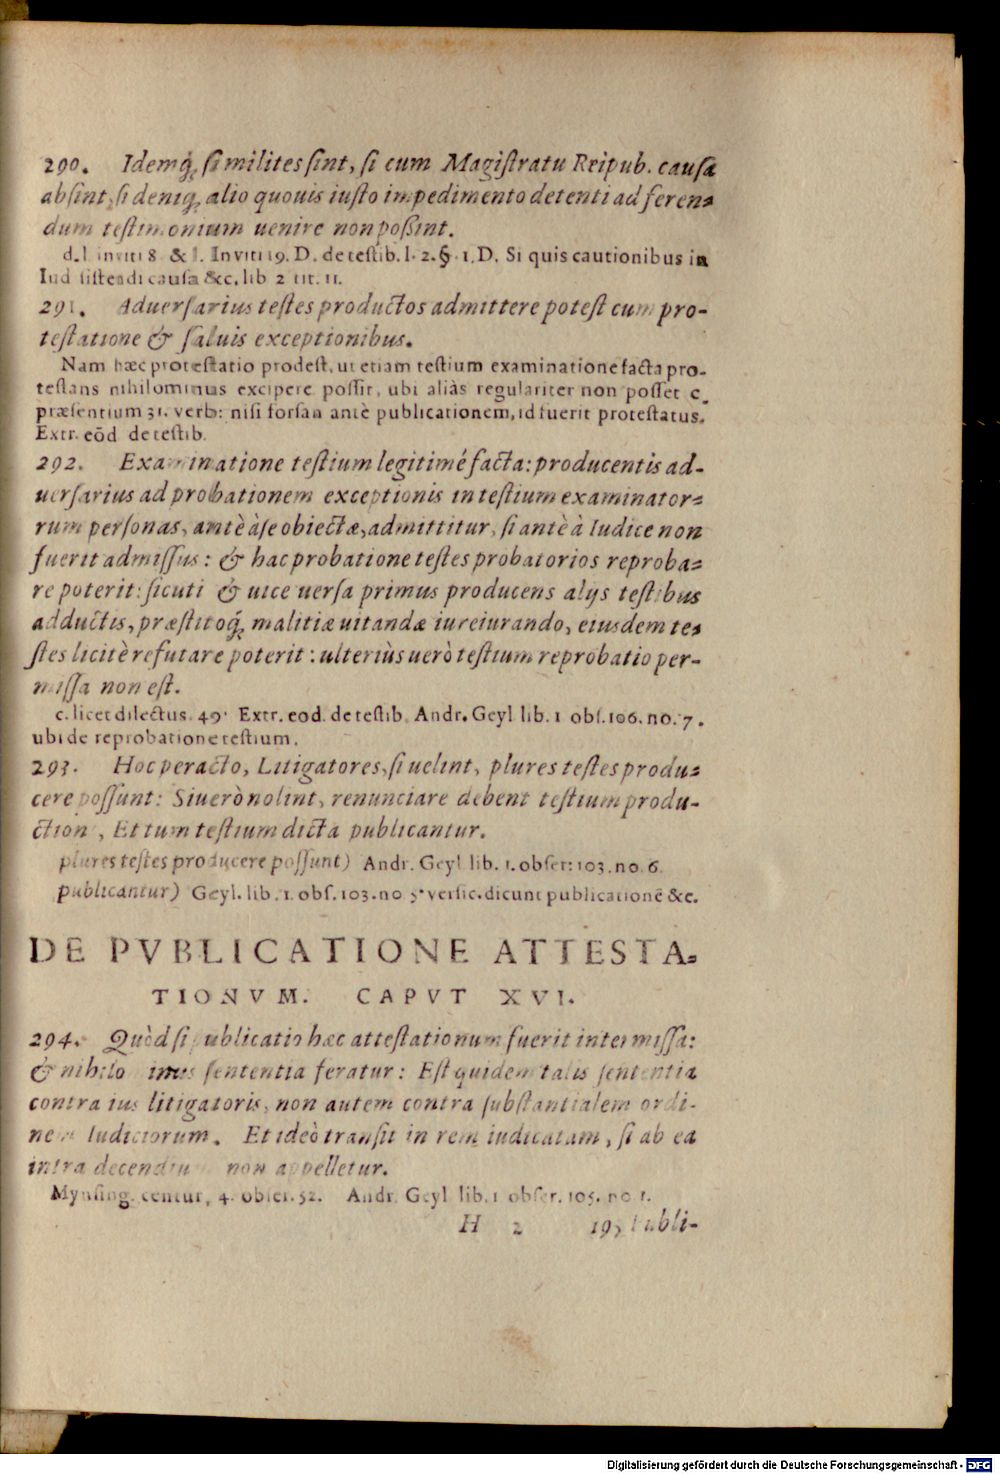 290. Idemq́; si milites sint, si cum Magistratu Reipub. causa
absint, si deniq; alio quouis iusto impedimento detenti ad feren=
dum testimonium uenire non poßint.
d. l. inviti 8 & l. Inviti 19. D. de testib. l. 2. §. 1. D. Si quis cautionibus in
Iud sistendi causa &c. lib 2 tit. 11.
291. Aduersarius testes productos admittere potest cum pro-
testatione & saluis exceptionibus.
Nam hæc protestatio prodest, ut etiam testium examinatione facta pro-
testans nihilominus excipere possit, ubi aliàs regulariter non posset c.
præsentium 31. verb: nisi forsan antè publicationem, id fuerit protestatus.
Extr. eōd de testib.
292. Examinatione testium legitimé facta: producentis ad-
uersarius ad probationem exceptionis in testium examinator=
rum personas, antè à se obiectæ, admittitur, si antè à Iudice non
fuerit admissus: & hac probatione testes probatorios reproba=
re poterit: sicuti & uice uersa primus producens alijs testibus
adductis, præstitoq́; malitiæ uitandæ iureiurando, eiusdem te=
stes licitè refutare poterit: ulteriùs uerò testium reprobatio per-
missa non est.
c. licet dilectus. 49. Extr. eod. de testib. Andr. Geyl lib. 1 obs. 106. no. 7.
ubi de reprobatione testium.
293. Hoc peracto, Litigatores, si uelint, plures testes produ=
cere possunt: Si uerò nolint, renunciare debent testium produ-
ction , Et tum testium dicta publicantur.
plures testes producere possunt) Andr. Geyl lib. 1. obser: 103. no. 6.
publicantur) Geyl. lib. 1. obs. 103. no 5. versic. dicunt publicationē &c.
DE PVBLICATIONE ATTESTA=
TIONVM. CAPVT XVI.
294. Quòd si publicatio hæc attestationum fuerit intermissa:
& nihilo imus sententia feratur: Est quidem talis sententia
contra ius litigatoris, non autem contra substantialem ordi-
nem Iudiciorum. Et ideò transit in rem iudicatam, si ab ea
intra decendiu non appelletur.
Mynsing. centur, 4. obser. 52. Andr. Geyl lib. 1 obser. 105. no 1.
H 2 195 Publi-
Digitalisierung gefördert durch die Deutsche Forschungsgemeinschaft - DFG